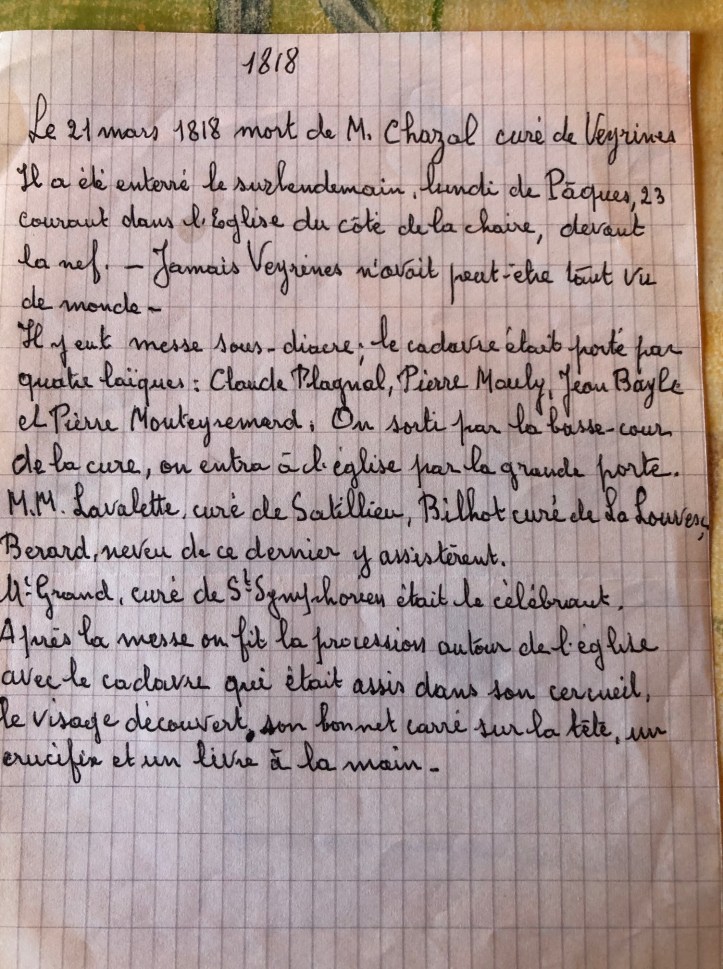 1818
Le 21 mars 1818 mort de M. Chazal curé de Veyrines
Il a été enterré le surlendemain, lundi de Pâques, 23
courant dans l'Eglise du côté de la chaire, devant
la nef. – Jamais Veyrines n'avait peut-être tant vu
de monde –
Il y eut messe sous-diacre ; le cadavre était porté par
quatre laïques : Claude Plagnal, Pierre Mouly, Jean Bayle
et Pierre Monteyremard. On sorti par la basse-cour
de la cure, on entra à l'église par la grande porte.
M.M. Lavalette, curé de Satillieu, Bilhot curé de La Louvesc,
Berard, neveu de ce dernier y assistèrent.
Mr Grand, curé de St Symphorien était le célébrant.
Après la messe on fit la procession autour de l'église
avec le cadavre qui était assis dans son cercueil,
le visage découvert, son bonnet carré sur la tête, un
crucifix et un livre à la main –